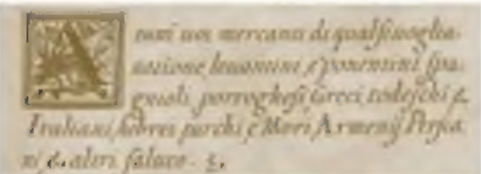 A tutti uoi mercanti di qualsiuoglia
natione, leuantini, e ponentini spa.
gnoli, portoghesi Greci, todeschi &
Italiani, hebrei turchi, e Mori, Armenij Persia
ni & altri salute.